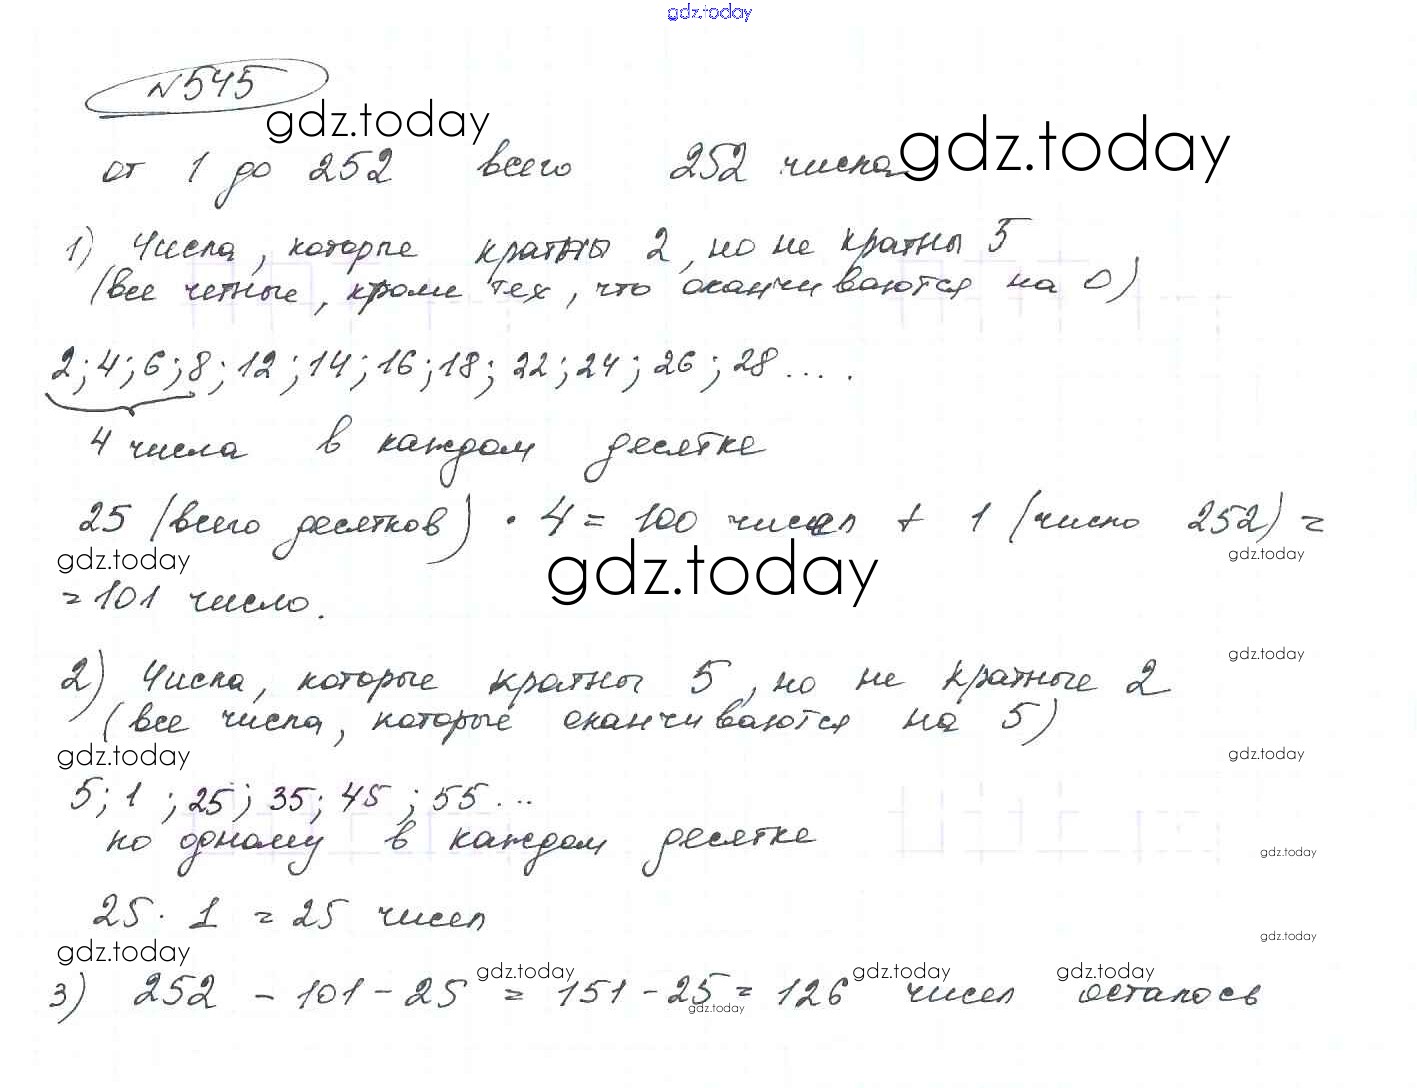 gdz.today
№545
gdz.today
gdz.today
от 1 до 252 всего 252 числа
1) Числа, которые кратны 2, но не кратны 5
(все четные, кроме тех, что оканчиваются на 0)
2; 4; 6; 8; 12; 14; 16; 18; 22; 24; 26; 28 ... .
4 числа в каждом десятке
25 (всего десятков) · 4 = 100 чисел + 1 (число 252) =
gdz.today
gdz.today
gdz.today
= 101 число.
gdz.today
2) Числа, которые кратны 5, но не кратные 2
(все числа, которые оканчиваются на 5)
gdz.today
gdz.today
5; 1 ; 25; 35; 45 ; 55 ...
по одному в каждом десятке
gdz.today
25 · 1 = 25 чисел
gdz.today
gdz.today
gdz.today
gdz.today
gdz.today
3) 252 - 101 - 25 = 151 - 25 = 126 чисел осталось
gdz.today